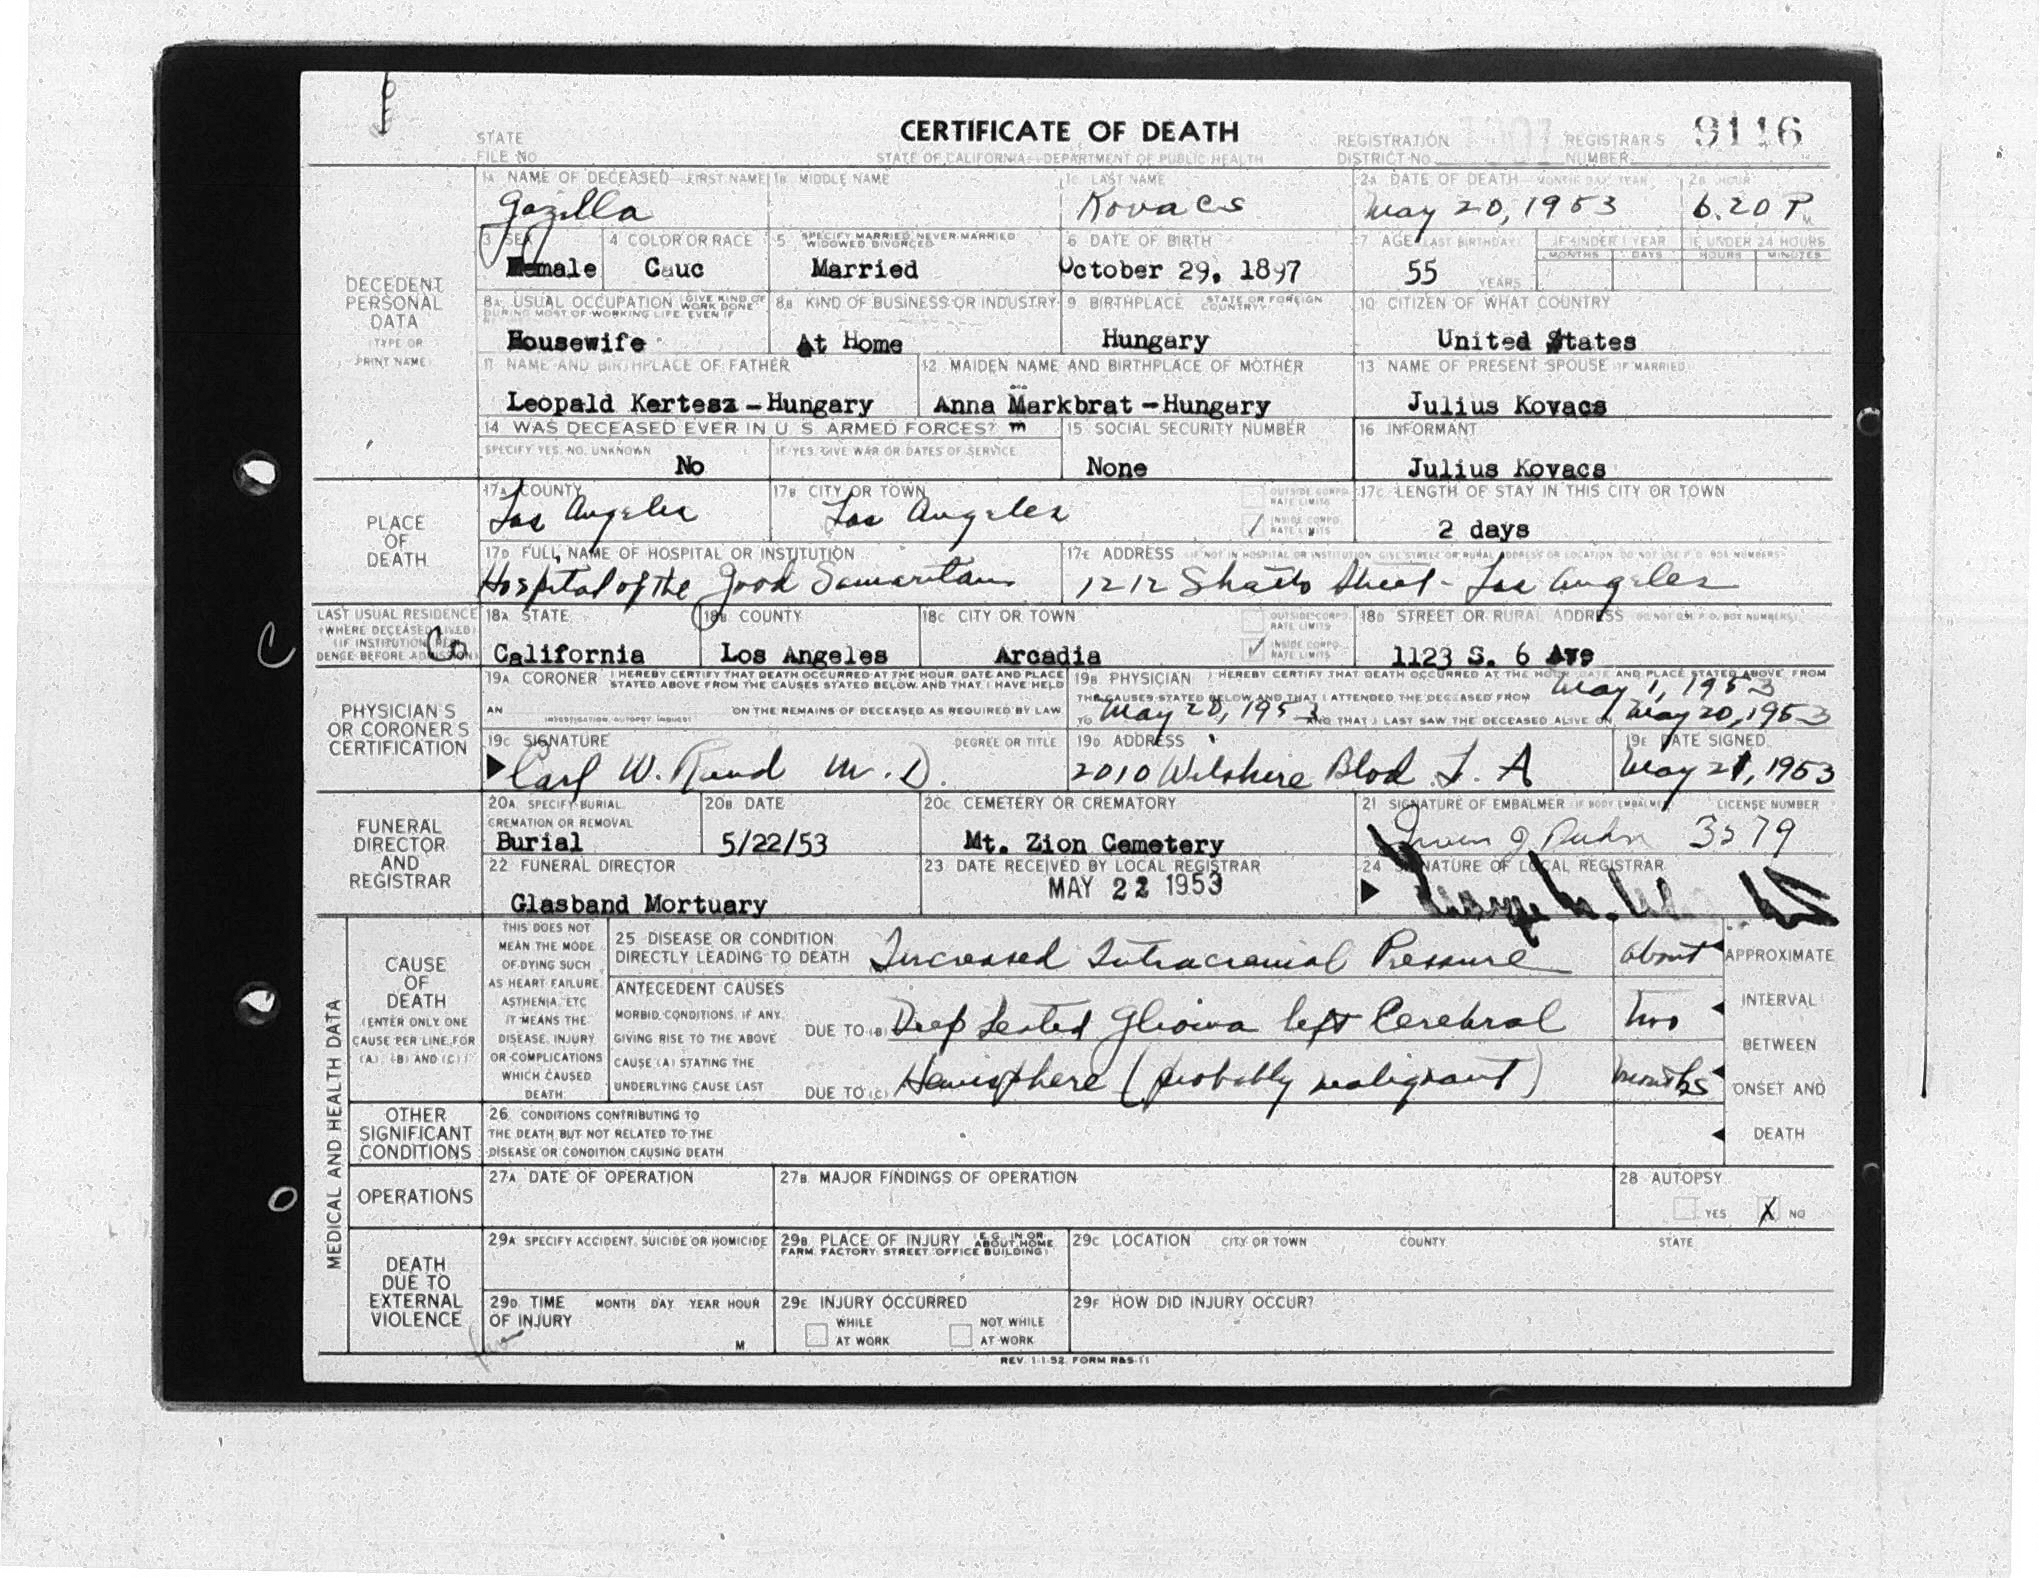 CERTIFICATE OF DEATH
STATE FILE NO
STATE OF CALIFORNIA—DEPARTMENT OF PUBLIC HEALTH
REGISTRATION DISTRICT NO.
REGISTRAR'S NUMBER 9116
DECEDENT PERSONAL DATA (TYPE OR PRINT NAME)
1A NAME OF DECEASED—FIRST NAME
Gazella
1B MIDDLE NAME
1C LAST NAME
Kovacs
2A DATE OF DEATH—MONTH DAY YEAR
May 20, 1953
2B HOUR
6.20 P M
3 SEX
Female
4 COLOR OR RACE
Cauc
5 SPECIFY MARRIED, NEVER MARRIED WIDOWED, DIVORCED
Married
6 DATE OF BIRTH
October 29, 1897
7 AGE (LAST BIRTHDAY)
55 YEARS
IF UNDER 1 YEAR
MONTHS DAYS
IF UNDER 24 HOURS
HOURS MINUTES
8A USUAL OCCUPATION (GIVE KIND OF WORK DONE DURING MOST OF WORKING LIFE, EVEN IF
Housewife
8B KIND OF BUSINESS OR INDUSTRY
At Home
9 BIRTHPLACE (STATE OR FOREIGN COUNTRY)
Hungary
10 CITIZEN OF WHAT COUNTRY
United States
11 NAME AND BIRTHPLACE OF FATHER
Leopald Kertesz - Hungary
12 MAIDEN NAME AND BIRTHPLACE OF MOTHER
Anna Markbrat - Hungary
13 NAME OF PRESENT SPOUSE (IF MARRIED)
Julius Kovacs
14 WAS DECEASED EVER IN U S ARMED FORCES?
SPECIFY YES, NO, UNKNOWN
No
IF YES, GIVE WAR OR DATES OF SERVICE
15 SOCIAL SECURITY NUMBER
None
16 INFORMANT
Julius Kovacs
PLACE OF DEATH
17A COUNTY
Los Angeles
17B CITY OR TOWN
Los Angeles
OUTSIDE CORPORATE LIMITS
INSIDE CORPORATE LIMITS
17C LENGTH OF STAY IN THIS CITY OR TOWN
2 days
17D FULL NAME OF HOSPITAL OR INSTITUTION
Hospital of the Good Samaritan
17E ADDRESS (IF NOT IN HOSPITAL OR INSTITUTION GIVE STREET OR RURAL ADDRESS OR LOCATION. DO NOT USE P.O. BOX NUMBERS)
1212 Shatto Street - Los Angeles
LAST USUAL RESIDENCE (WHERE DECEASED LIVED) (IF INSTITUTION RESIDENCE BEFORE ADMISSION)
Co
18A STATE
California
18B COUNTY
Los Angeles
18C CITY OR TOWN
Arcadia
OUTSIDE CORPORATE LIMITS
INSIDE CORPORATE LIMITS
18D STREET OR RURAL ADDRESS (DO NOT USE P.O. BOX NUMBERS)
1123 S. 6 Ave
PHYSICIAN'S OR CORONER'S CERTIFICATION
19A CORONER I HEREBY CERTIFY THAT DEATH OCCURRED AT THE HOUR DATE AND PLACE STATED ABOVE FROM THE CAUSES STATED BELOW, AND THAT I HAVE HELD
AN INVESTIGATION, AUTOPSY, INQUEST ON THE REMAINS OF DECEASED AS REQUIRED BY LAW
19B PHYSICIAN I HEREBY CERTIFY THAT DEATH OCCURRED AT THE HOUR DATE AND PLACE STATED ABOVE FROM
THE CAUSES STATED BELOW AND THAT I ATTENDED THE DECEASED FROM May 1, 1953
TO May 20, 1953 AND THAT I LAST SAW THE DECEASED ALIVE ON May 20, 1953
19C SIGNATURE
DEGREE OR TITLE
Carl W. Rand M.D.
19D ADDRESS
2010 Wilshire Blvd L.A
19E DATE SIGNED
May 21, 1953
FUNERAL DIRECTOR AND REGISTRAR
20A SPECIFY BURIAL CREMATION OR REMOVAL
Burial
20B DATE
5/22/53
20C CEMETERY OR CREMATORY
Mt. Zion Cemetery
21 SIGNATURE OF EMBALMER (IF BODY EMBALMED) LICENSE NUMBER
3579
22 FUNERAL DIRECTOR
Glasband Mortuary
23 DATE RECEIVED BY LOCAL REGISTRAR
MAY 22 1953
24 SIGNATURE OF LOCAL REGISTRAR
MEDICAL AND HEALTH DATA
CAUSE OF DEATH (ENTER ONLY ONE CAUSE PER LINE FOR (A), (B) AND (C))
THIS DOES NOT MEAN THE MODE OF DYING SUCH AS HEART FAILURE, ASTHENIA, ETC IT MEANS THE DISEASE, INJURY OR COMPLICATIONS WHICH CAUSED DEATH
25 DISEASE OR CONDITION DIRECTLY LEADING TO DEATH
Increased Intracranial Pressure
about
ANTECEDENT CAUSES
MORBID CONDITIONS, IF ANY, GIVING RISE TO THE ABOVE CAUSE (A) STATING THE UNDERLYING CAUSE LAST
DUE TO (B) Deep Seated Glioma left Cerebral
two
DUE TO (C) Hemisphere (probably malignant)
months
APPROXIMATE INTERVAL BETWEEN ONSET AND DEATH
OTHER SIGNIFICANT CONDITIONS
26 CONDITIONS CONTRIBUTING TO THE DEATH BUT NOT RELATED TO THE DISEASE OR CONDITION CAUSING DEATH
OPERATIONS
27A DATE OF OPERATION
27B MAJOR FINDINGS OF OPERATION
28 AUTOPSY
YES X NO
DEATH DUE TO EXTERNAL VIOLENCE
29A SPECIFY ACCIDENT, SUICIDE OR HOMICIDE
29B PLACE OF INJURY (E.G. IN OR ABOUT HOME, FARM, FACTORY, STREET, OFFICE BUILDING)
29C LOCATION CITY OR TOWN COUNTY STATE
29D TIME OF INJURY MONTH DAY YEAR HOUR
M
29E INJURY OCCURRED
WHILE AT WORK
NOT WHILE AT WORK
29F HOW DID INJURY OCCUR?
REV. 1-1-52 FORM R&S-11